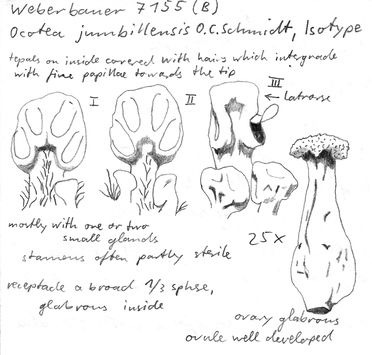 Weberbauer 7155 (B)
Ocotea jumbillensis O.C.Schmidt, Isotype
tepals on inside covered with hairs which intergrade
with fine papillae towards the tip
I
II
III
← Latrorse
mostly with one or two
small glands
stamens often partly sterile
25x
receptacle a broad 1/3 sphse,
glabrous inside
ovary glabrous
ovule well developed